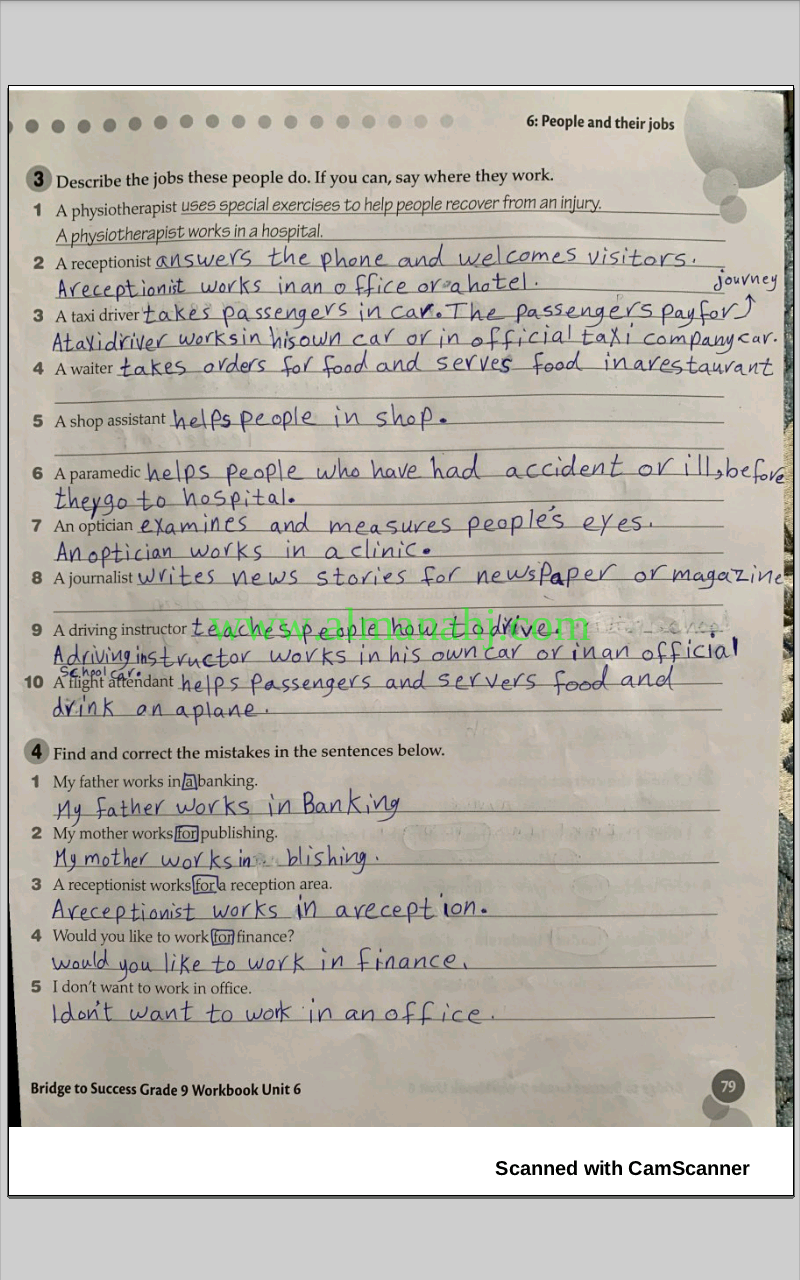 6: People and their jobs
3 Describe the jobs these people do. If you can, say where they work.
1 A physiotherapist uses special exercises to help people recover from an injury.
A physiotherapist works in a hospital.
2 A receptionist answers the phone and welcomes visitors.
A receptionist works in an office or a hotel.
journey
3 A taxi driver takes passengers in car. The passengers pay for
A taxi driver works in his own car or in official taxi company car.
4 A waiter takes orders for food and serves food in a restaurant
5 A shop assistant helps people in shop.
6 A paramedic helps people who have had accident or ill, before
they go to hospital.
7 An optician examines and measures people's eyes.
An optician works in a clinic.
8 A journalist writes news stories for newspaper or magazine
9 A driving instructor teaches people how to drive.
www.almanahj.com
A driving instructor works in his own car or in an official
school car.
10 A flight attendant helps passengers and servers food and
drink on a plane.
4 Find and correct the mistakes in the sentences below.
1 My father works in a banking.
My father works in Banking
2 My mother works for publishing.
My mother works in blishing.
3 A receptionist works for a reception area.
A receptionist works in a reception.
4 Would you like to work for finance?
would you like to work in finance.
5 I don't want to work in office.
I don't want to work in an office.
Bridge to Success Grade 9 Workbook Unit 6
79
Scanned with CamScanner